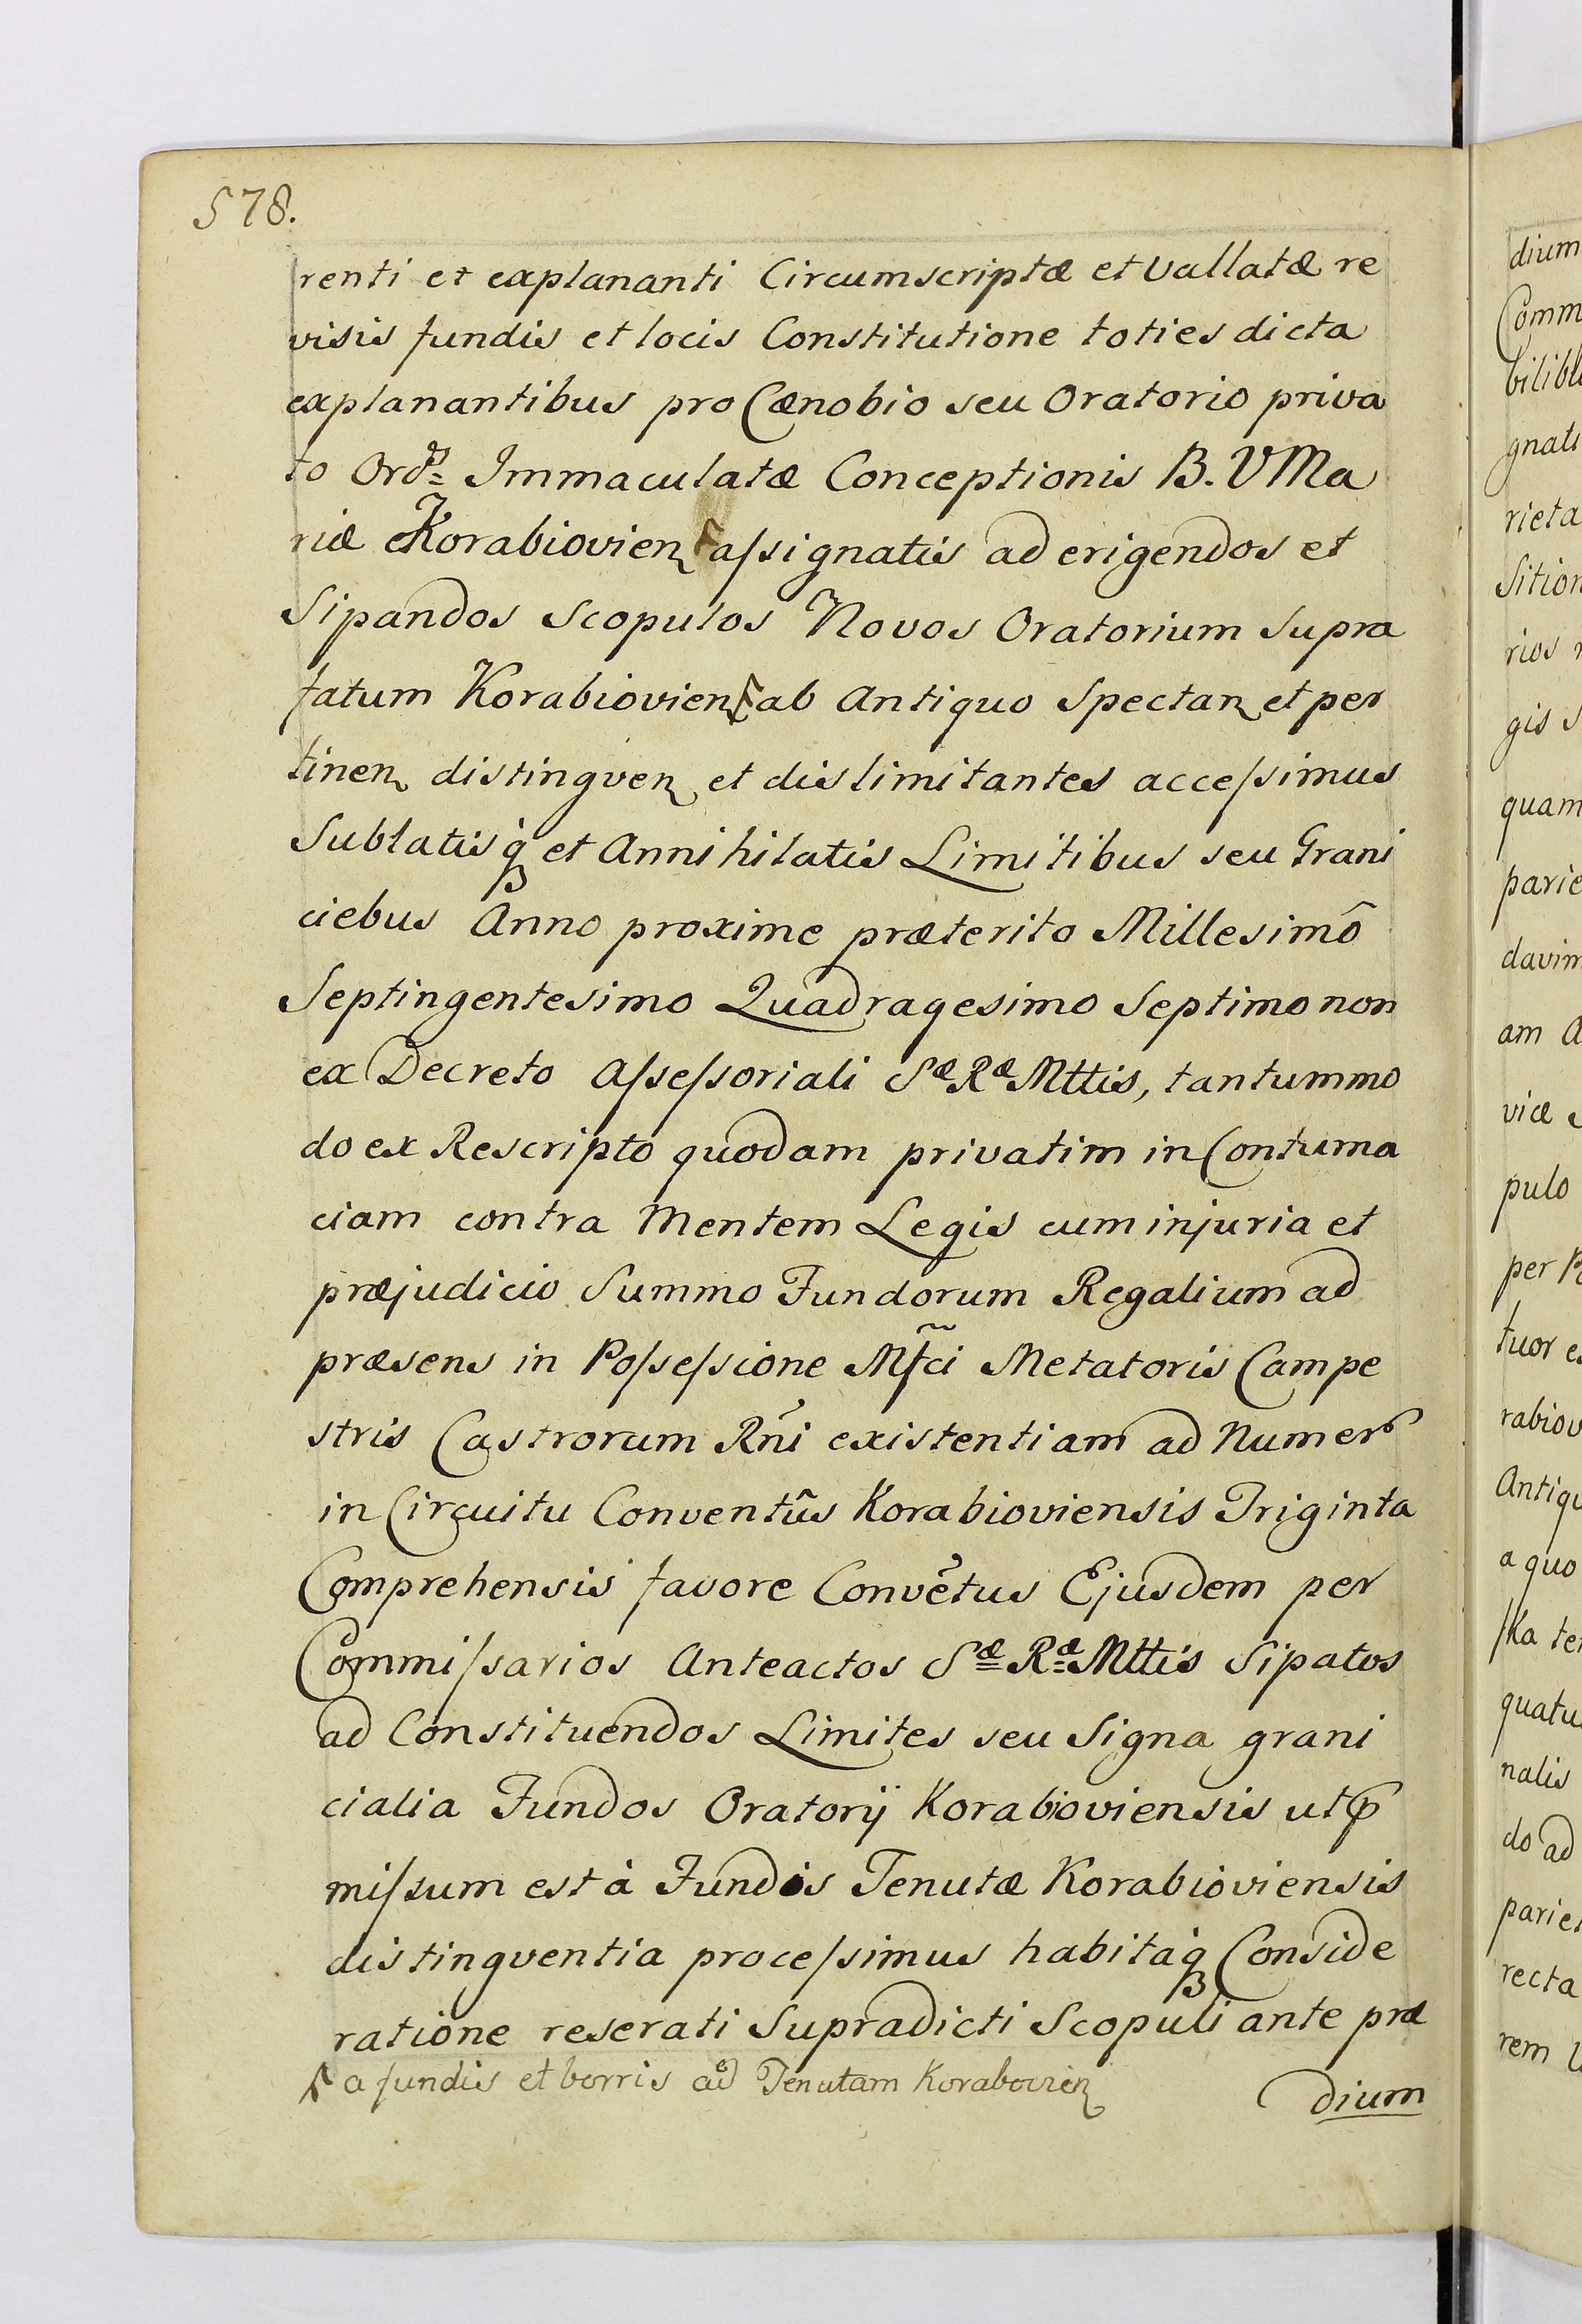 578.
renti et explananti Circumscriptæ et vallatæ re
visis fundis et locis Constitutione toties dicta
explanantibus pro Cænobio seu Oratorio priva
to Ordis Immaculatæ Conceptionis B. V Ma
riæ Korabiovien aſsignatis ad erigendos et
Sipandos Scopulos Novos Oratorium supra
fatum Korabiovien ab Antiquo Spectan et per
tinen distingven et dislimitantes acceſsimus
Sublatisq̀ꝫ et Annihilatis Limitibus seu Grani
ciebus Anno proxime præterito Millesimô
Septingentesimo Quadragesimo Septimo non
ex Decreto Aſseſsoriali Sæ Ræ Mttis, tantummo
do ex Rescripto quodam privatim in Contuma
ciam contra Mentem Legis cum injuria et
præjudicio Summo Fundorum Regalium ad
præsens in Poſseſsione Mf̃ci Metatoris Campe
stris Castrorum Rñi existentiam ad Numerũ
in Circuitu Conventûs Korabioviensis Triginta
Comprehensis favore Convẽtus Ejusdem per
Commiſsarios Anteactos Sæ Ræ Mttis Sipatos
ad Constituendos Limites seu Signa grani
cialia Fundos Oratorij Korabioviensis ut ꝓ
miſsum est à Fundis Tenutæ Korabioviensis
distingventia proceſsimus habitaq̀ꝫ Conside
ratione reserati Supradicti Scopuli ante præ
a fundis et borris ad Tenutam Korabovien
dium
dium
Comm
gnati
rieta
Sition
rios
gis
quam
parie
davim
am A
viæ
pulo
per
tuor
rabiov
Antiqu
a quo
quatu
nalis
do ad
parie
recta
rem